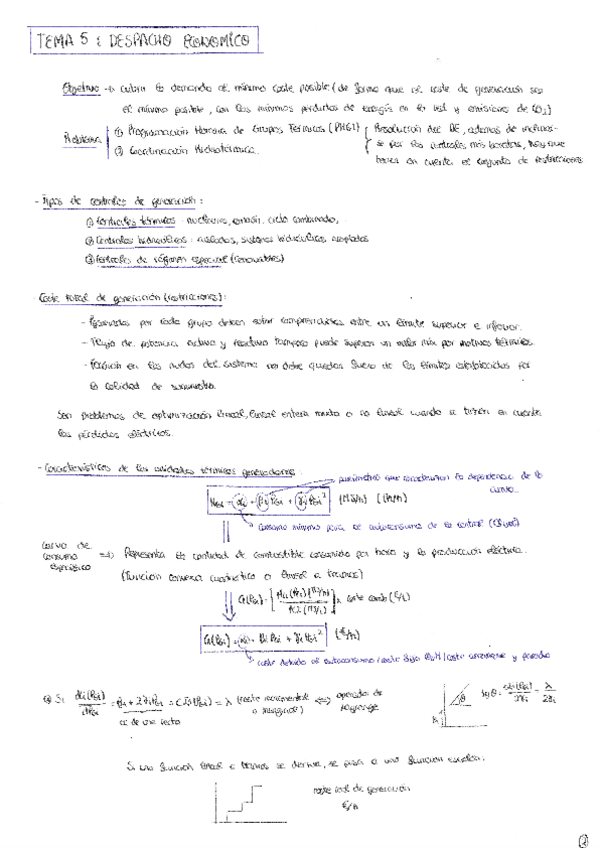 TEMA 5 : DESPACHO ECONOMICO
Objetivo → cubrir la demanda al mínimo coste posible (de forma que el coste de generación sea
el mínimo posible, con las mínimas pérdidas de energía en la red y emisiones de CO2)
Problema ① Programación Horaria de Grupos Térmicos (PHGT) Resolución del DE, además de
② Coordinación Hidrotérmica. se por las centrales más baratas, hay que
tener en cuenta el conjunto de restricciones
- Tipos de centrales de generación :
① Centrales térmicas: nucleares, carbón, ciclo combinado,
② Centrales hidraulicas : aisladas, sistemas hidraulicos acoplados
③ Centrales de régimen especial (renovables)
- Coste total de generación (restricciones) :
- por cada grupo deben estar comprendidas entre un límite superior e inferior.
- Flujo de potencia activa y reactiva tampoco puede superar un valor máx por motivos térmicos.
- Tensión en los nudos del sistema no debe quedar fuera de los límites establecidos por
la calidad de suministro.
Son problemas de optimización lineal, lineal entera mixta o no lineal cuando se tienen en cuenta
las pérdidas eléctricas.
- Características de las unidades térmicas generadoras
parámetros que caracterizan la dependencia de la
curva.
= αi + βi PGi + γi PGi²
consumo mínimo para el autoconsumo de la central
Curva de
consumo
específico
⇒ Representa la cantidad de combustible consumido por hora y la producción eléctrica.
(Función convexa cuadrática o lineal a tramos)
Ci(PGi) = x coste comb (€/t)
Ci(PGi) = αi + βi PGi + γi PGi² (€/h)
coste debido al autoconsumo / coste fijo / coste arranque y parada
Si dCi(PGi)/dPGi = βi + 2γi PGi = Ci'(PGi) = λ (coste incremental ⟺ operador de
o marginal) Lagrange
de una recta
θ tg θ = = λ
Si una función lineal a tramos se deriva, se pasa a una función escalón.
coste real de generación
€/h